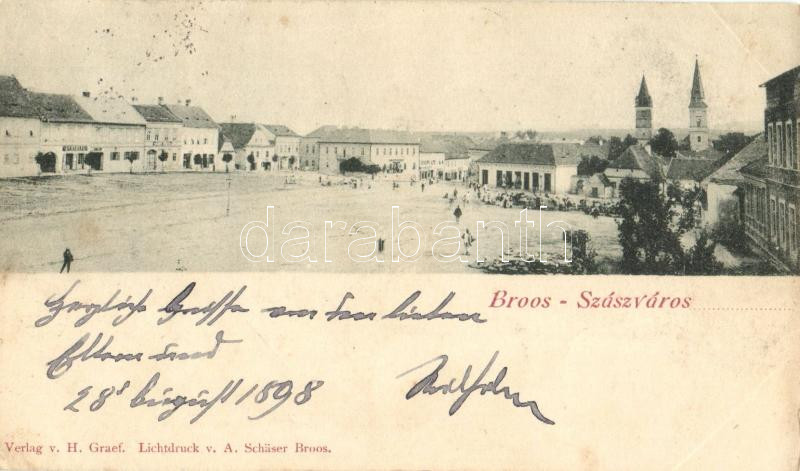 darabanth
Broos - Szászváros
Herzliche Grüsse an den lieben
Eltern und
28 August 1898
Verlag v. H. Graef. Lichtdruck v. A. Schäser Broos.